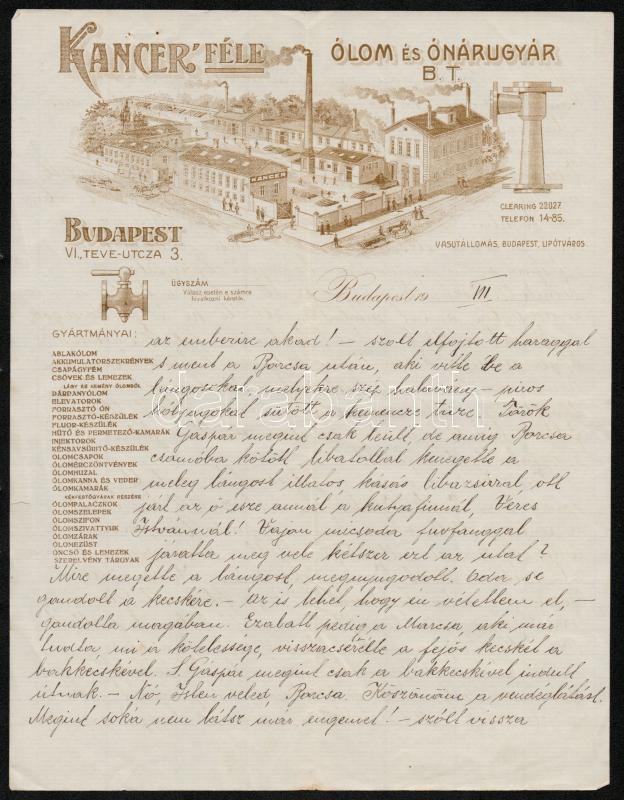 KANCER' FÉLE ÓLOM ÉS ÓNÁRUGYÁR
B. T.
KANCER
CLEARING 22027
TELEFON 14-85.
BUDAPEST
VI., TEVE-UTCZA 3.
VASUTÁLLOMÁS, BUDAPEST, LIPÓTVÁROS.
ÜGYSZÁM
Válasz esetén e számra
hivatkozni kérjük.
Budapest 19 III
GYÁRTMÁNYAI:
ABLAKÓLOM
AKKUMULATORSZEKRÉNYEK
CSAPÁGYFÉM
CSÖVEK ÉS LEMEZEK
LÁGY ÉS KEMÉNY ÓLOMBÓL
DÁRDANYÓLOM
ELEVATOROK
FORRASZTÓ ÓN
FORRASZTÓ-KÉSZÜLÉK
FLUOR-KÉSZÜLÉK
HŰTŐ ÉS PERMETEZŐ-KAMARÁK
INJEKTOROK
KÉNSAVSŰRÍTŐ-KÉSZÜLÉK
ÓLOMCSAPOK
ÓLOMÉRCZÖNTVÉNYEK
ÓLOMHUZAL
ÓLOMKANNA ÉS VEDER
ÓLOMKAMARÁK
KÉKFESTŐGYÁRAK RÉSZÉRE
ÓLOMPALACZKOK
ÓLOMSZELEPEK
ÓLOMSZIFON
ÓLOMSZIVATTYUK
ÓLOMZÁRAK
ÓLOMEZÜST
ÓNCSŐ ÉS LEMEZEK
SZERELVÉNY TÁRGYAK
az emberire akad! – szólt elfojtott haraggal
s ment a Borcsa után, aki vitte be a
lángosokat, melyekre szép halavány-piros
hólyagokat sütött a kemencze tüze. Török
Gáspár megint csak leült, de amig Borcsa
csomóba kötött libatollal kenegette a
meleg lángost illatos kásás libazsírral, ott
járt az ő esze annál a kutyafiunál, Veres
Istvánnál! Vajon micsoda furfanggal
járatta meg vele kétszer ezt az utat?
Mire megette a lángost, megnyugodott. Oda se
gondolt a kecskére. – Az is lehet, hogy én vétettem el, –
gondolta magában. Ezalatt pedig a Marcsa, aki már
tudta mi a kötelessége, visszacserélte a fejős kecskét a
bakkecskével. S Gáspár megint csak a bakkecskével indult
útnak. – Nó, Isten veled, Borcsa. Köszönöm a vendéglátást.
Megint soká nem látsz már engemet! – szólt vissza
darabanth